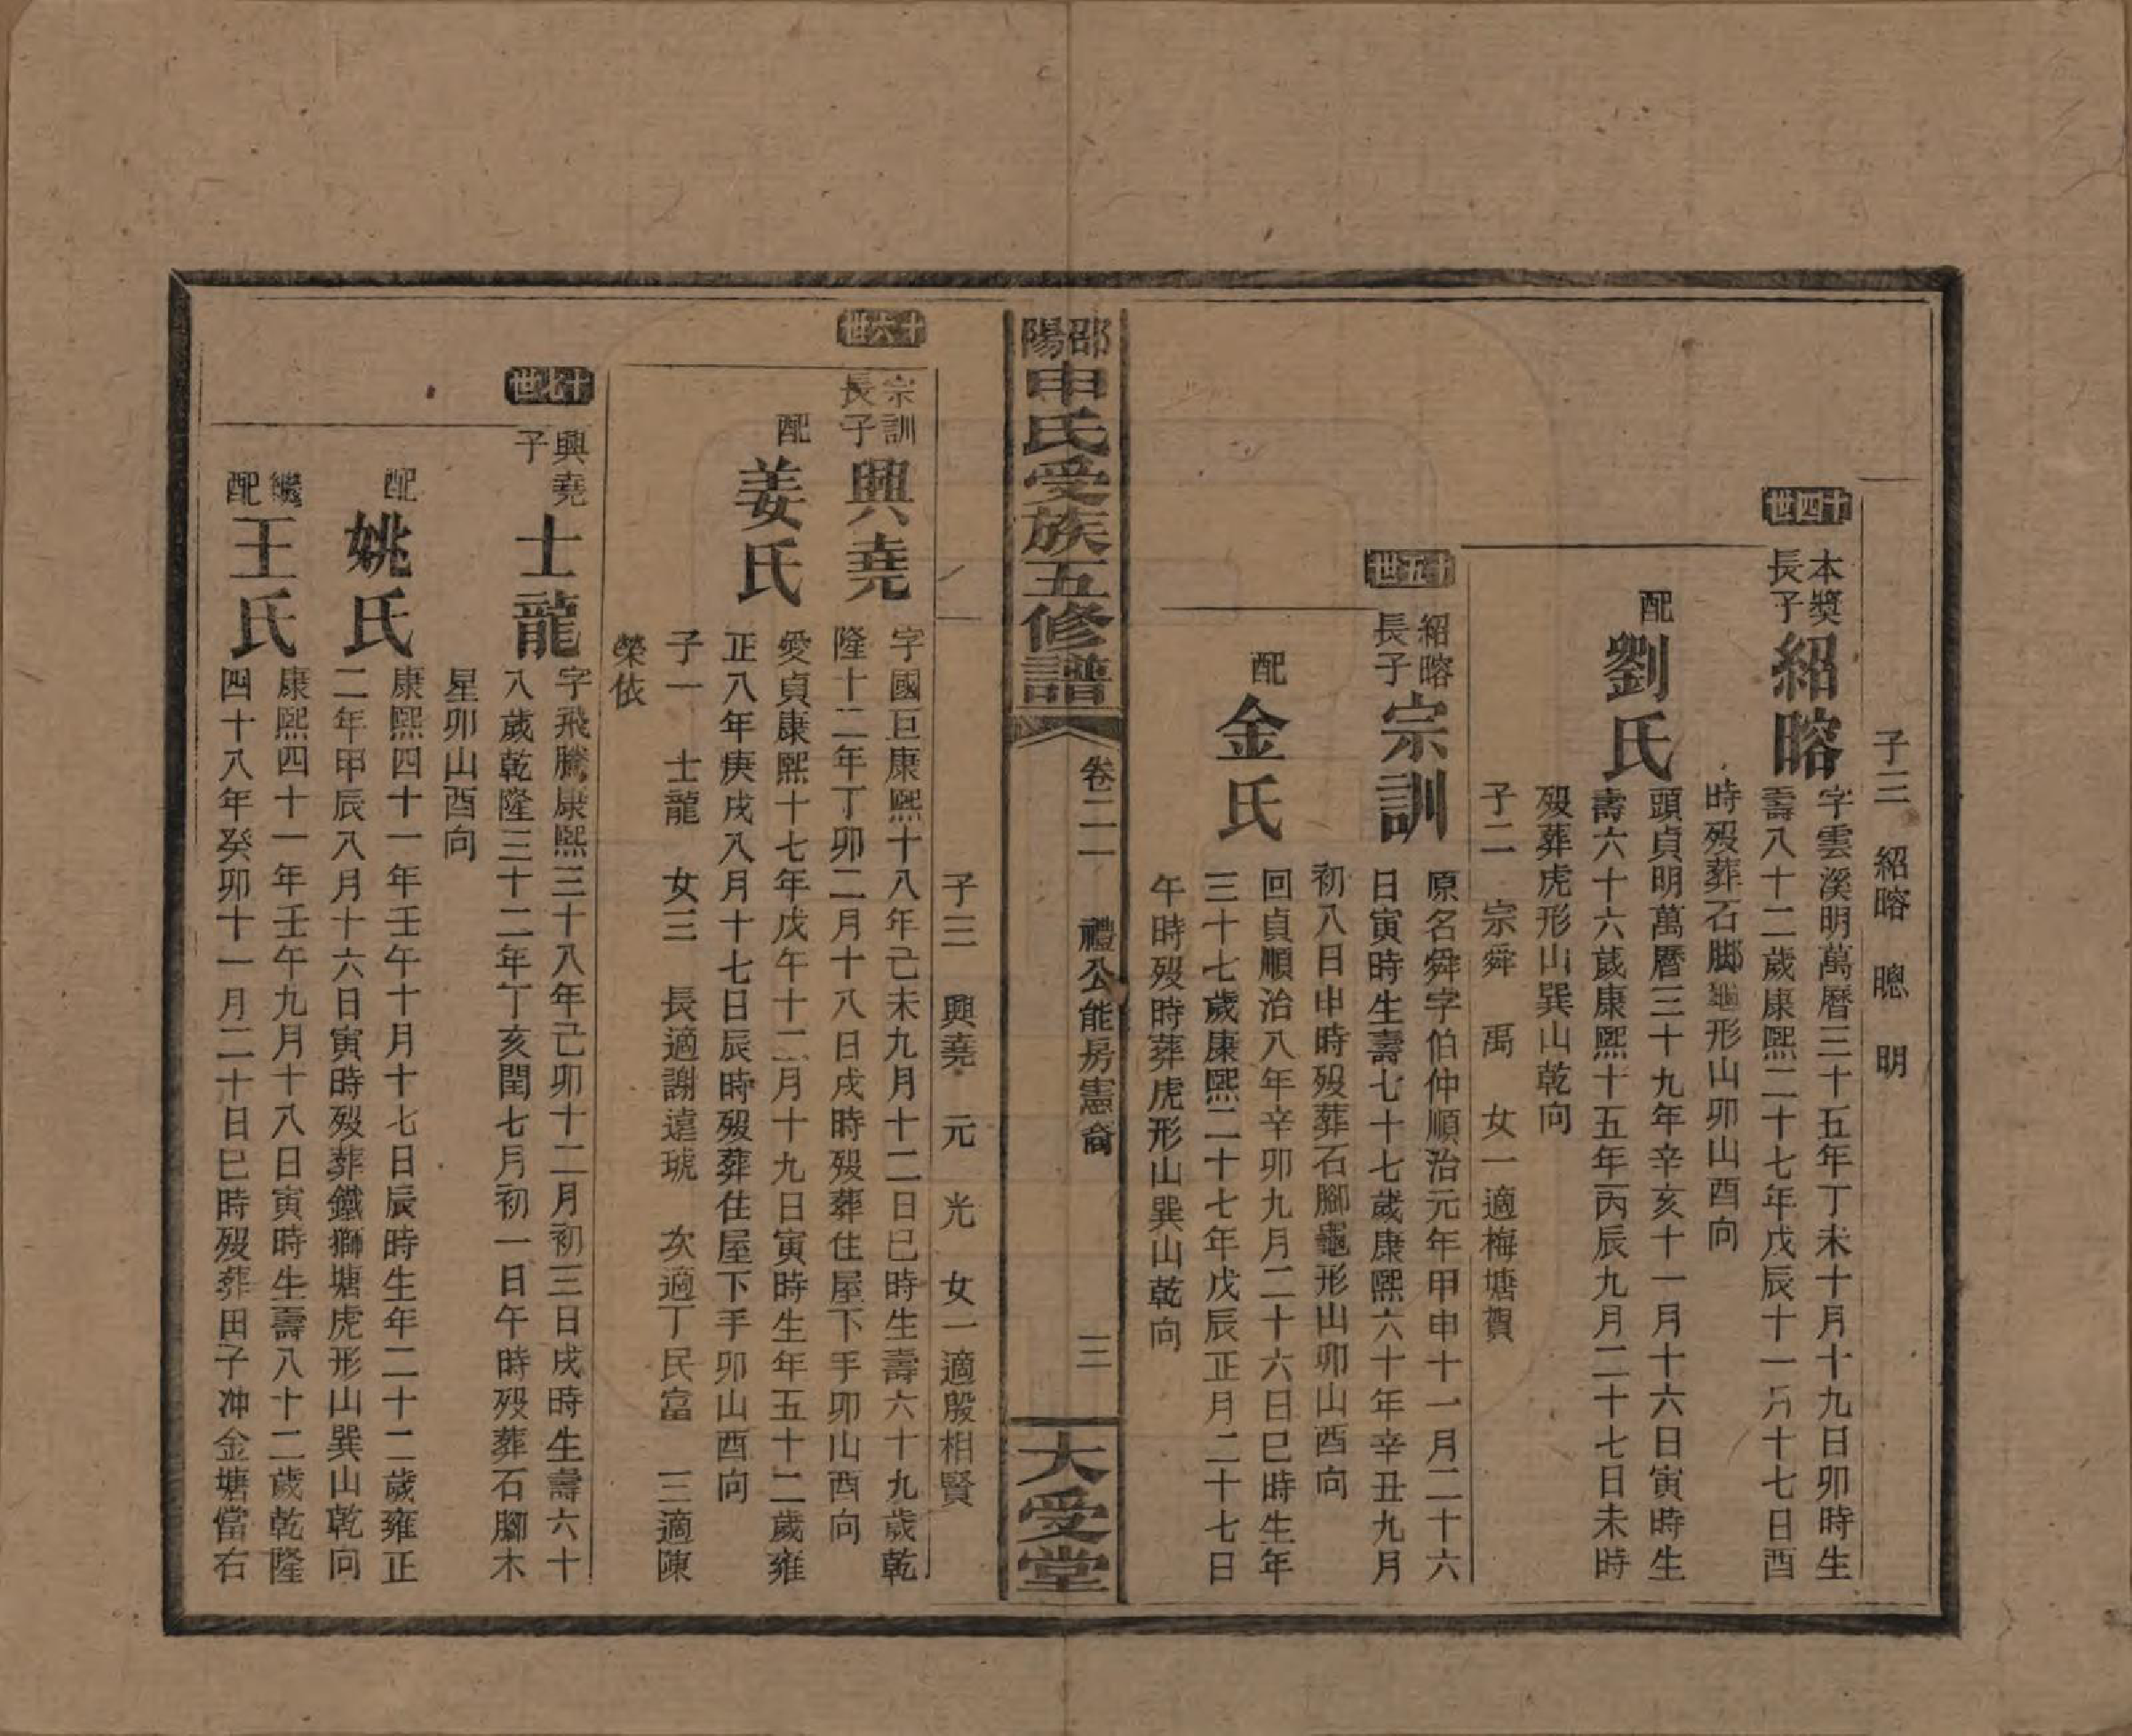 子三 紹㗉 聰 明
十四世
本獎長子
紹㗉
字雲溪明萬曆三十五年丁未十月十九日卯時生
壽八十二歲康熙二十七年戊辰十一月十七日酉
時歿葬石脚龜形山卯山酉向
配
劉氏
頭貞明萬曆三十九年辛亥十一月十六日寅時生
壽六十六歲康熙十五年丙辰九月二十七日未時
歿葬虎形山巽山乾向
子二 宗舜 禹 女一適梅塘賀
十五世
紹㗉長子
宗訓
原名舜字伯仲順治元年甲申十一月二十六
日寅時生壽七十七歲康熙六十年辛丑九月
初八日申時歿葬石腳龜形山卯山酉向
配
金氏
回貞順治八年辛卯九月二十六日巳時生年
三十七歲康熙二十七年戊辰正月二十七日
午時歿時葬虎形山巽山乾向
邵陽申氏受族五修譜
卷二一 禮公能房憲裔
三
大受堂
子三 興堯 元 光 女一適殷相賢
十六世
宗訓長子
興堯
字國巨康熙十八年己未九月十二日巳時生壽六十九歲乾
隆十二年丁卯二月十八日戌時歿葬住屋下手卯山酉向
配
姜氏
愛貞康熙十七年戊午十二月十九日寅時生年五十二歲雍
正八年庚戌八月十七日辰時歿葬住屋下手卯山酉向
子一 士龍 女三 長適謝遠琥 次適丁民富 三適陳
榮依
十七世
興堯子
士龍
字飛騰康熙三十八年己卯十二月初三日戌時生壽六十
八歲乾隆三十二年丁亥閏七月初一日午時歿葬石腳木
星卯山酉向
配
姚氏
康熙四十一年壬午十月十七日辰時生年二十二歲雍正
二年甲辰八月十六日寅時歿葬鐵獅塘虎形山巽山乾向
繼配
王氏
康熙四十一年壬午九月十八日寅時生壽八十二歲乾隆
四十八年癸卯十一月二十日巳時歿葬田子冲金塘當右